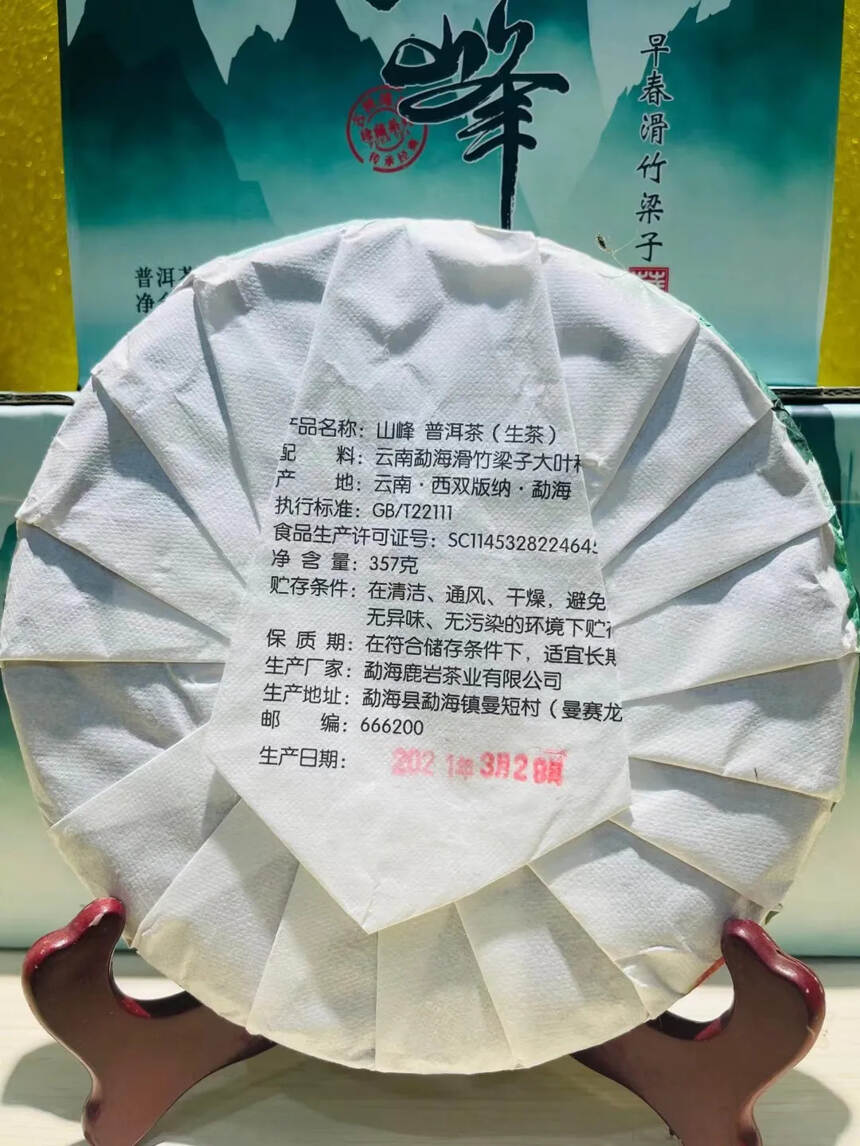 山峰
早春滑竹梁子
传承经典
普洱茶
净含
产品名称：山峰 普洱茶（生茶）
配 料：云南勐海滑竹梁子大叶种
产 地：云南·西双版纳·勐海
执行标准：GB/T22111
食品生产许可证号：SC1145328224645
净 含 量：357克
贮存条件：在清洁、通风、干燥，避免
无异味、无污染的环境下贮存
保 质 期：在符合储存条件下，适宜长期
生产厂家：勐海鹿岩茶业有限公司
生产地址：勐海县勐海镇曼短村（曼赛龙
邮 编：666200
生产日期：2021年3月29日